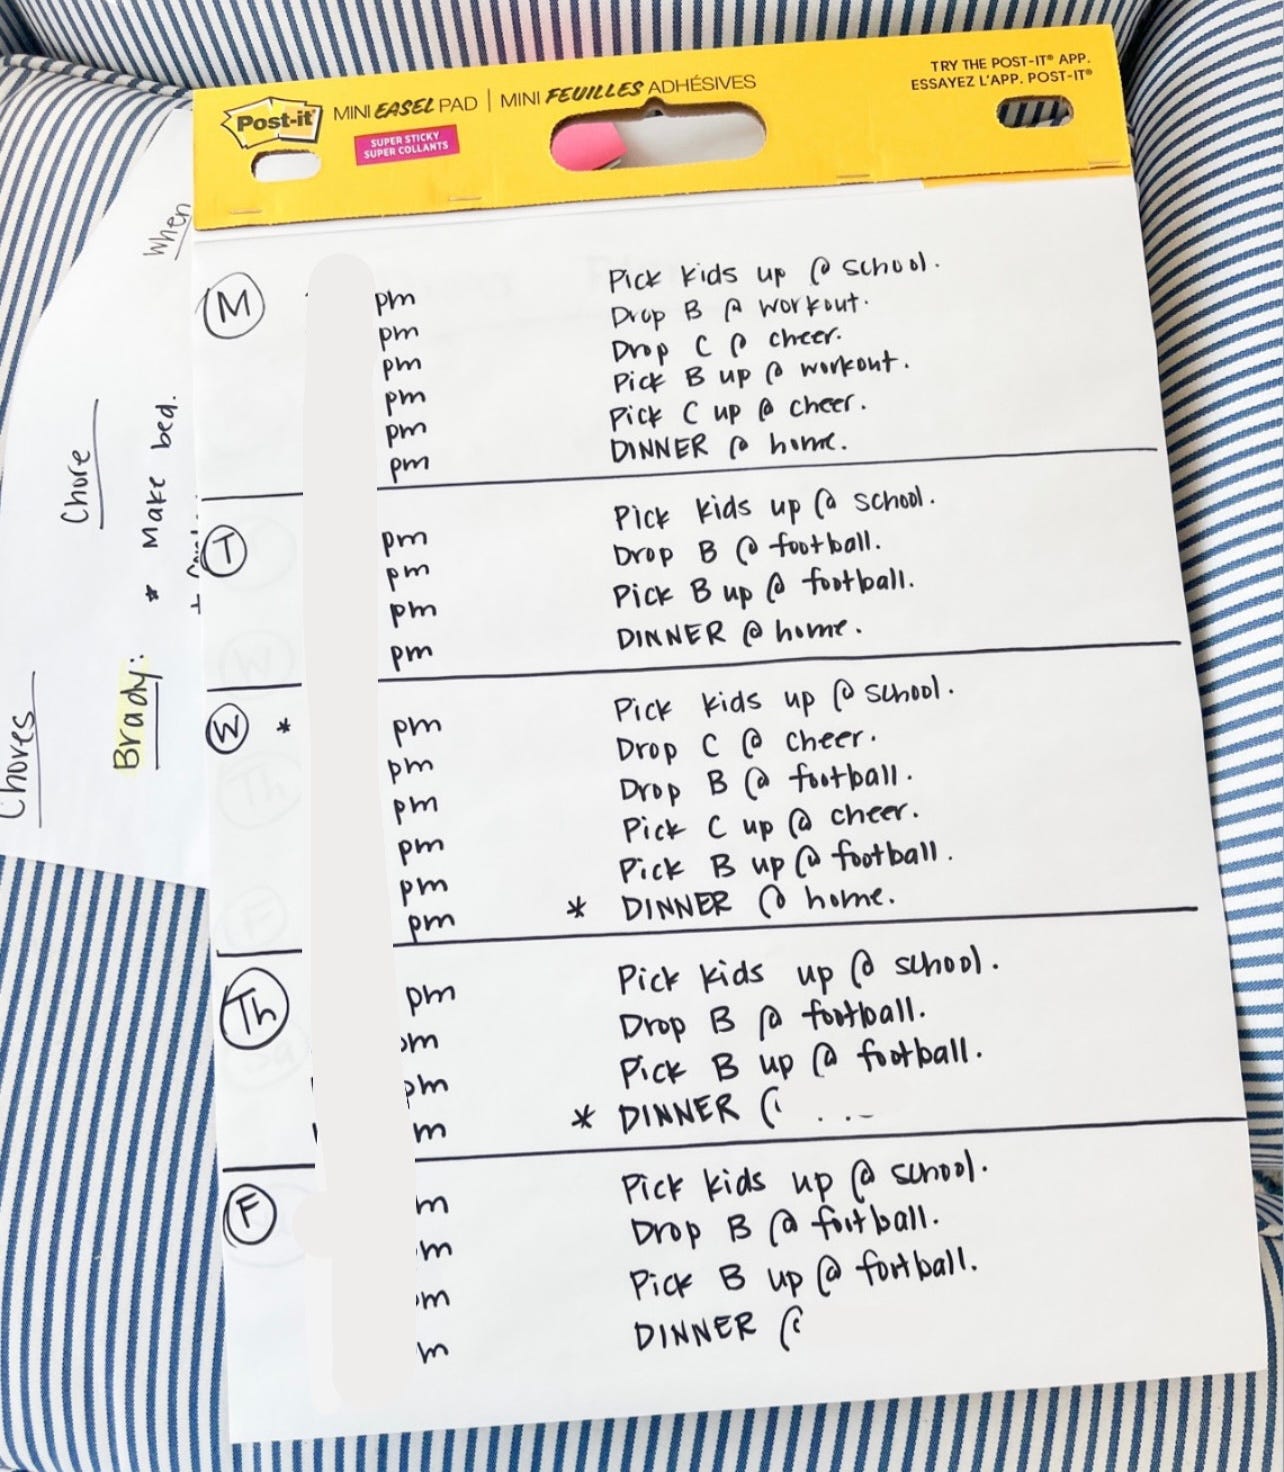 Post-it
MINI EASEL PAD | MINI FEUILLES ADHÉSIVES
SUPER STICKY
SUPER COLLANTS
TRY THE POST-IT® APP.
ESSAYEZ L'APP. POST-IT®
When
Chore
* Make bed.
Brady:
Chores
M
pm Pick kids up @ school.
pm Drop B @ workout.
pm Drop C @ cheer.
pm Pick B up @ workout.
pm Pick C up @ cheer.
pm DINNER @ home.
T
pm Pick kids up @ school.
pm Drop B @ football.
pm Pick B up @ football.
pm DINNER @ home.
W *
pm Pick kids up @ school.
pm Drop C @ cheer.
pm Drop B @ football.
pm Pick C up @ cheer.
pm Pick B up @ football.
pm * DINNER @ home.
Th
pm Pick kids up @ school.
pm Drop B @ football.
pm Pick B up @ football.
m * DINNER @
F
m Pick kids up @ school.
m Drop B @ football.
m Pick B up @ football.
m DINNER @